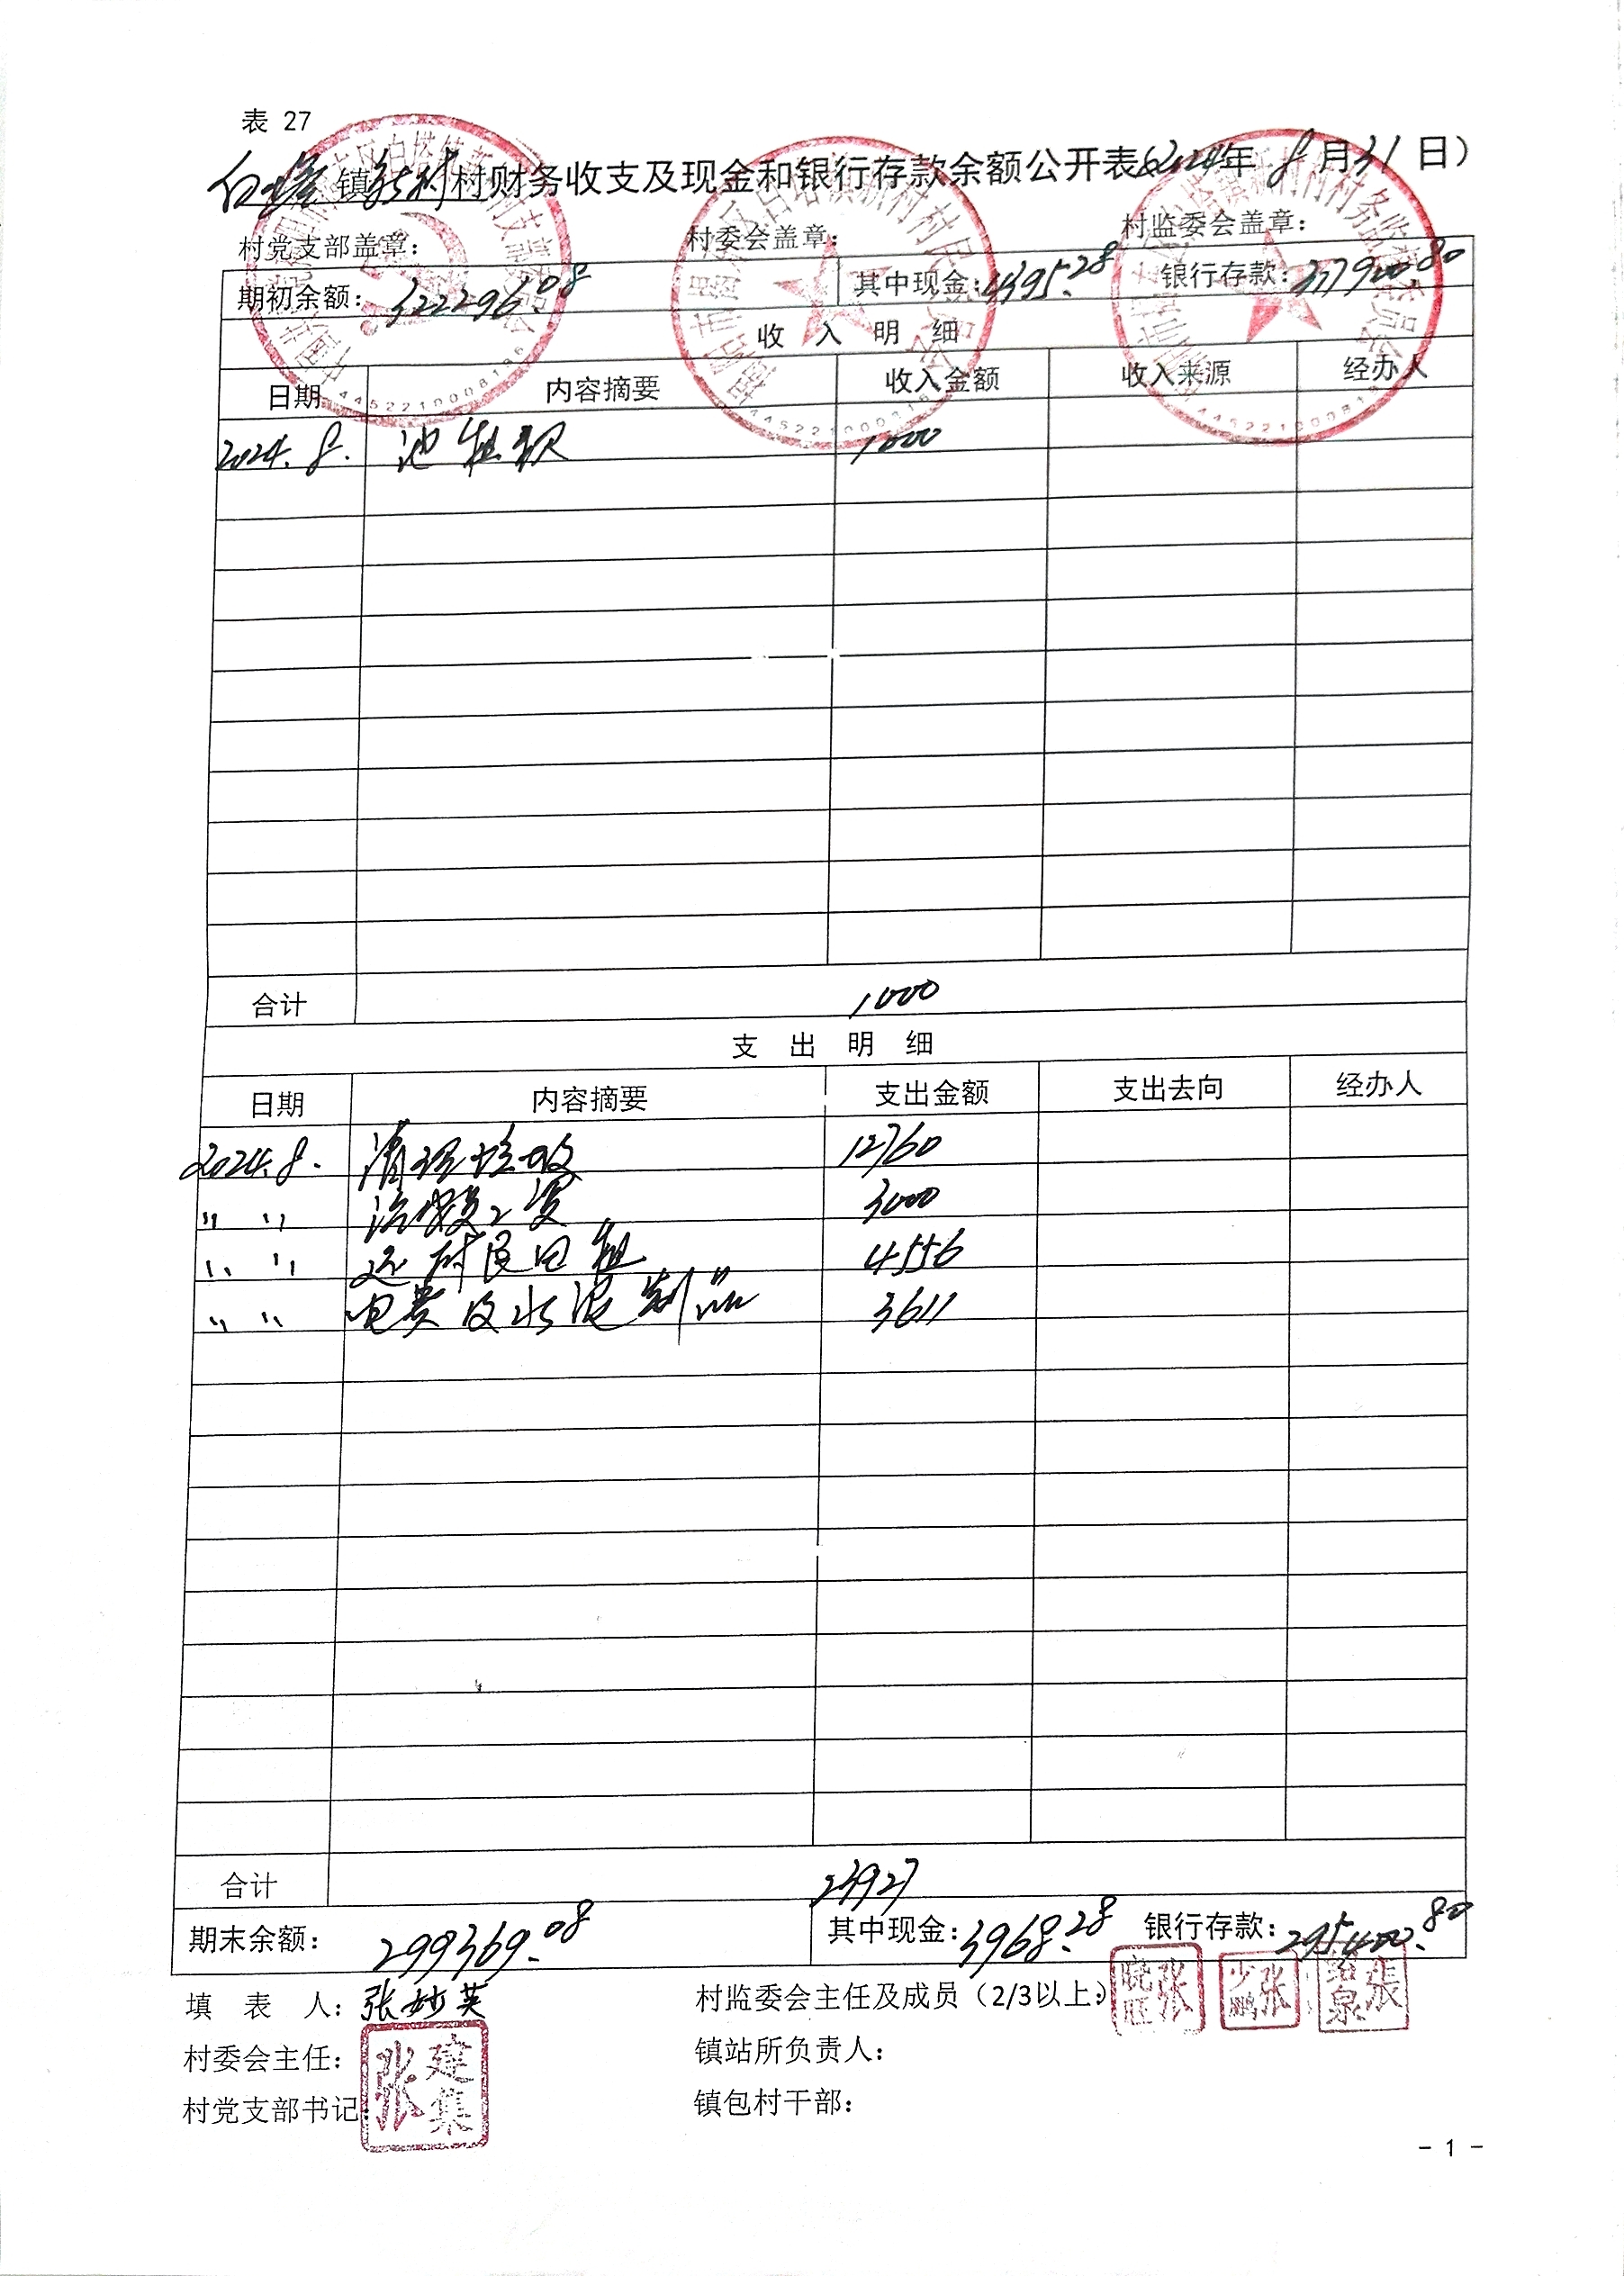 表 27
白塔镇新村村财务收支及现金和银行存款余额公开表(2024年8月31日)
村党支部盖章: 村委会盖章: 村监委会盖章:
期初余额:322296.08 其中现金:4395.28 银行存款:317900.80
收 入 明 细
日期 内容摘要 收入金额 收入来源 经办人
2024.8. 池租款 1000
合计 1000
支 出 明 细
日期 内容摘要 支出金额 支出去向 经办人
2024.8. 清理垃圾 12760
〃 〃 治聩工资 3000
〃 〃 还村民田租 4556
〃 〃 电费及水泥制品 3611
合计 23927
期末余额: 299369.08 其中现金:3968.28 银行存款:295400.80
填 表 人:张妙英 村监委会主任及成员(2/3以上):张晓旺 张少鹏 張绍泉
村委会主任: 镇站所负责人:
张建集
村党支部书记: 镇包村干部:
- 1 -